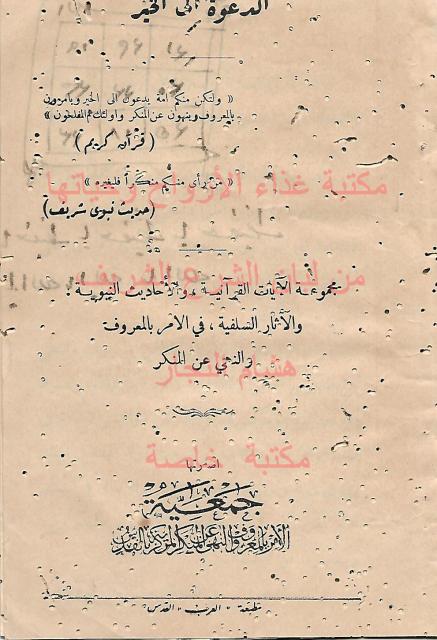 الدعوة الى الخير
« ولتكن منكم أمة يدعون الى الخير ويأمرون
بالمعروف وينهون عن المنكر واولئك هم المفلحون »
( قرآن كريم )
« من رأى منكم منكرا فليغيره »
مكتبة غذاء الأرواح وحياتها
(حديث نبوي شريف)
من لباب الشرع الشريف
مجموعة الآيات القرآنية ، والأحاديث النبوية
والآثار السلفية ، في الامر بالمعروف
والنهي عن المنكر
هشام النجار
مكتبة خاصة
جمعية
الأمر بالمعروف والنهي عن المنكر المركزية بالقدس
مطبعة « العرب » القدس